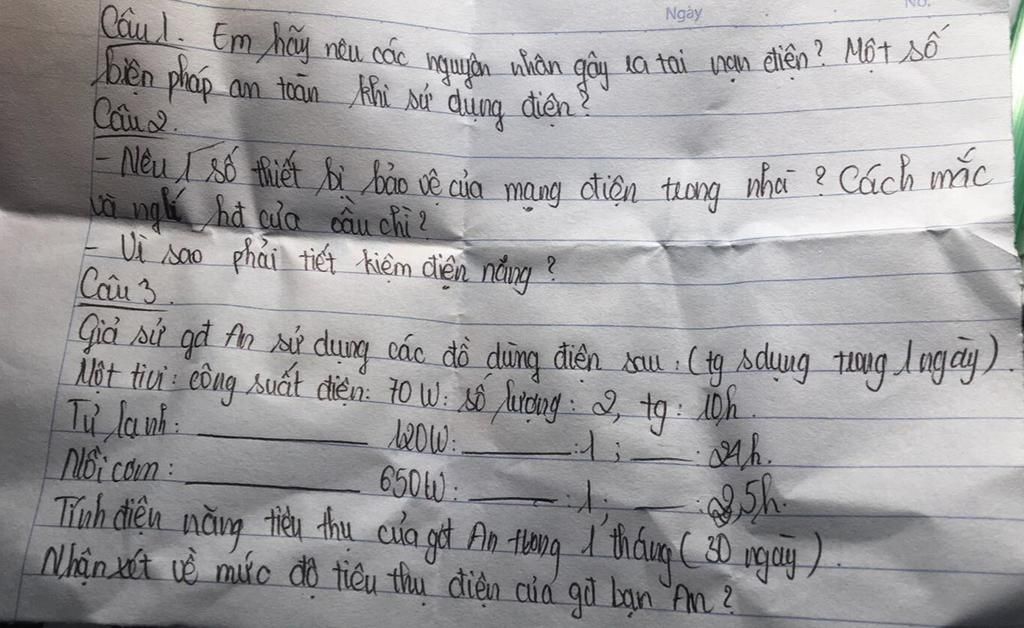 Ngày
No.
Câu 1. Em hãy nêu các nguyên nhân gây ra tai nạn điện? Một số
biện pháp an toàn khi sử dụng điện?
Câu 2.
- Nêu 1 số thiết bị bảo vệ của mạng điện trong nhà? Cách mắc
và nglí hđ của cầu chì?
- Vì sao phải tiết kiệm điện năng?
Câu 3.
Giả sử gđ An sử dụng các đồ dùng điện sau: (tg sdụng trong 1 ngày).
Một tivi: công suất điện: 70W: số lượng: 2, tg: 10h.
Tủ lạnh: ______ 120W: ______: 1 ; ___: 24h.
Nồi cơm: ______ 650W: ______: 1; ___: 2,5h.
Tính điện năng tiêu thụ của gđ An trong 1 tháng (30 ngày).
Nhận xét về mức độ tiêu thụ điện của gđ bạn An?